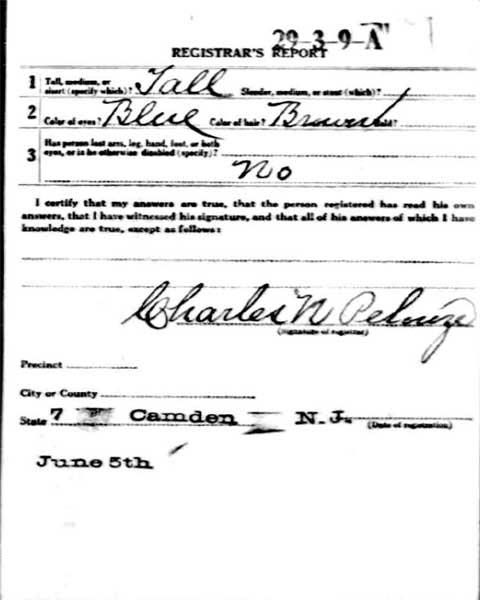 29-3-9-A
REGISTRAR'S REPORT
1 Tall, medium, or short (specify which)? Tall Slender, medium, or stout (which)?
2 Color of eyes? Blue Color of hair? Brown Bald?
3 Has person lost arm, leg, hand, foot, or both eyes, or is he otherwise disabled (specify)?
No
I certify that my answers are true, that the person registered has read his own
answers, that I have witnessed his signature, and that all of his answers of which I have
knowledge are true, except as follows:
Charles N Pelouze
(Signature of registrar)
Precinct
City or County
State 7 Camden N.J.
(Date of registration)
June 5th